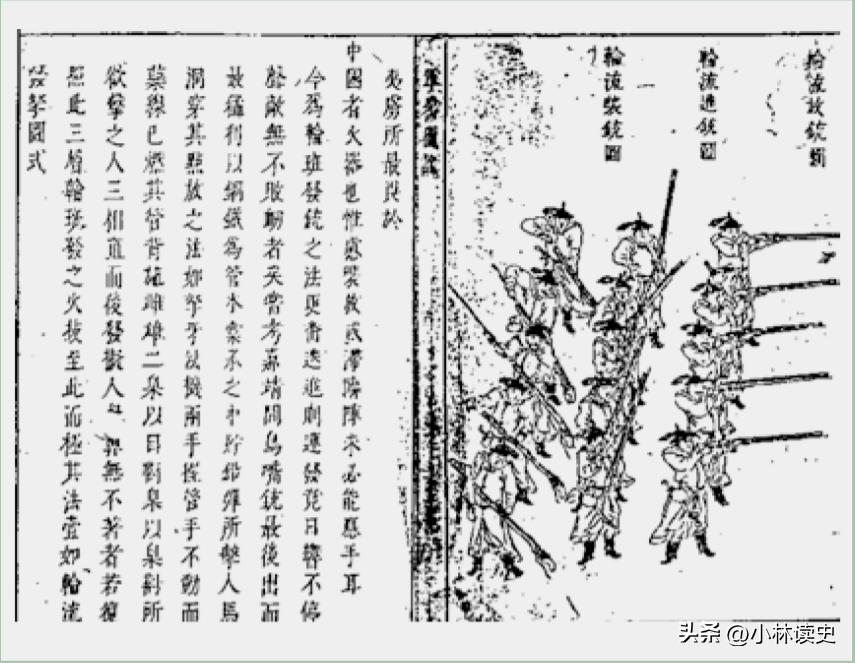 輪流放銃圖
輪流進銃圖
輪流裝銃圖
軍器圖說
夷虜所最畏於
中國者火器也惟慮裝放或滯臨陣未必能應手耳
今為輪班發銃之法更番迭進則連發竟日響不停
聲敵無不敗衂者矣嘗考嘉靖間鳥嘴銃最後出而
最猛利以鋼鐵為管木橐承之中貯鉛彈所擊人馬
洞穿其點放之法如弩牙以機兩手握管手不動而
藥線已燃其管背施雌雄二臬以目對臬以臬對所
欲擊之人三相直而後發擬人無不著者若復
照此三層輪班發之火技至此而極其法壹如輪流
發弩圖式
头条 @小林读史